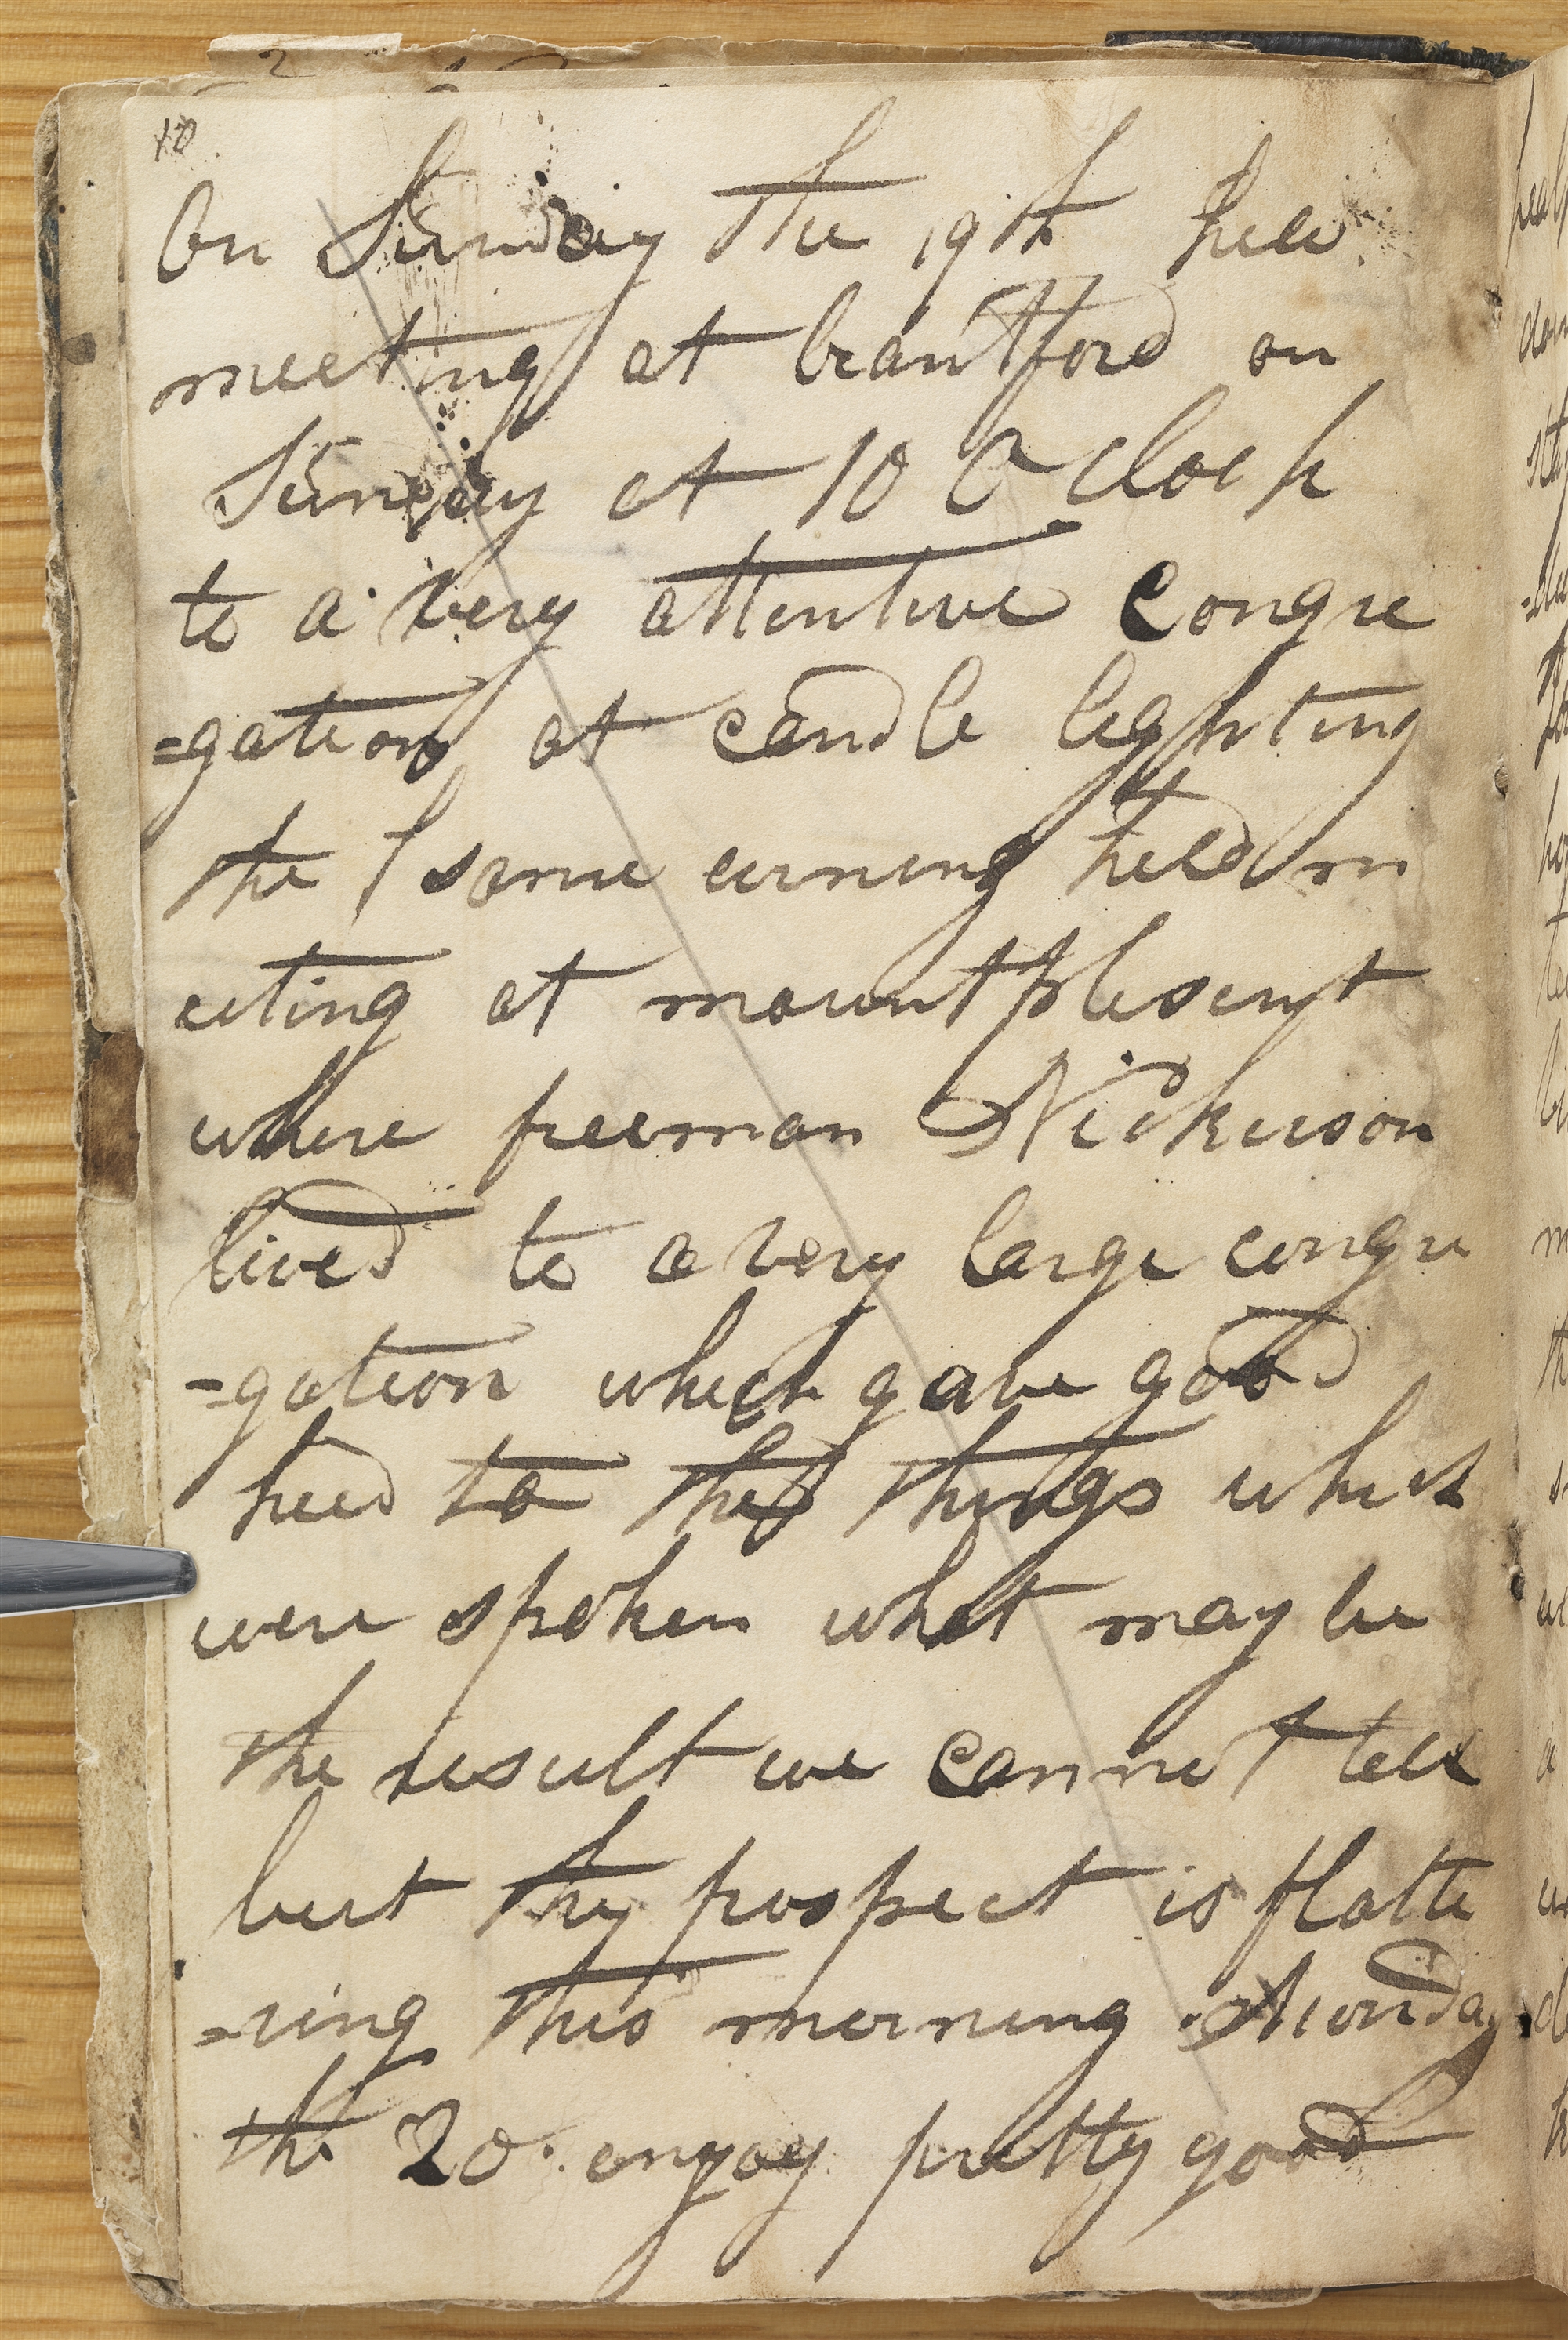 10
On Sunday the 19th held
meeting at brantford on
Sunday at 10 O clock
to a very attentive congre
=gation at candle lighting
the same evening held me
eting at mount plesent
where freeman Nickerson
lived to a very large congre
=gation which gave good
heed to the things which
were spoken what may be
the result we cannot tell
but the prospect is flatte
=ring this morning Monday
the 20. enjoy pretty good